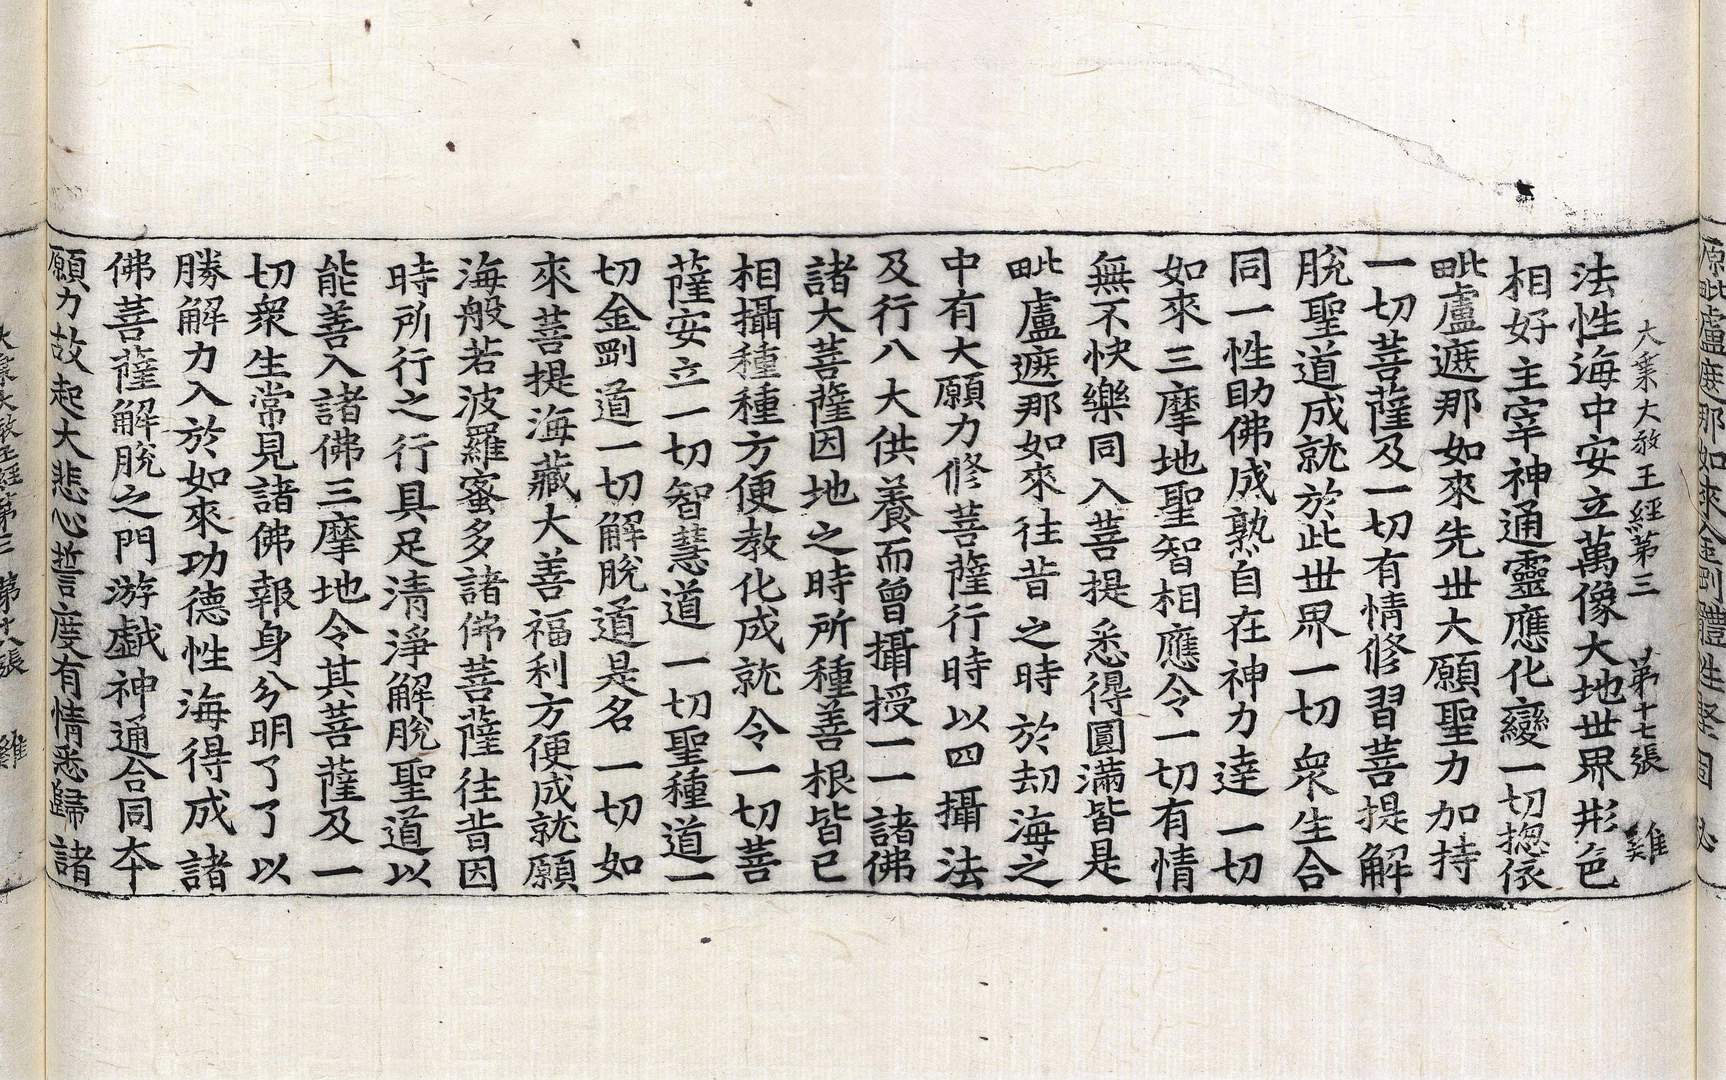 願毗盧遮那如來金剛體性堅固
大乗大教王經第三　第十七張　雞
法性海中安立萬像大地世界形色
相好主宰神通靈應化變一切揔依
毗盧遮那如來先世大願聖力加持
一切菩薩及一切有情修習菩提解
脫聖道成就於此世界一切衆生合
同一性助佛成熟自在神力達一切
如來三摩地聖智相應令一切有情
無不快樂同入菩提悉得圓滿皆是
毗盧遮那如來往昔之時於劫海之
中有大願力修菩薩行時以四攝法
及行八大供養而曾攝授一一諸佛
諸大菩薩因地之時所種善根皆已
相攝種種方便教化成就令一切菩
薩安立一切智慧道一切聖種道一
切金剛道一切解脫道是名一切如
來菩提海藏大善福利方便成就願
海般若波羅蜜多諸佛菩薩往昔因
時所行之行具足清淨解脫聖道以
能善入諸佛三摩地令其菩薩及一
切衆生常見諸佛報身分明了了以
勝解力入於如來功德性海得成諸
佛菩薩解脫之門游戯神通合同夲
願力故起大悲心誓度有情悉歸諸
大乗大教王經第三　第十八張　雞